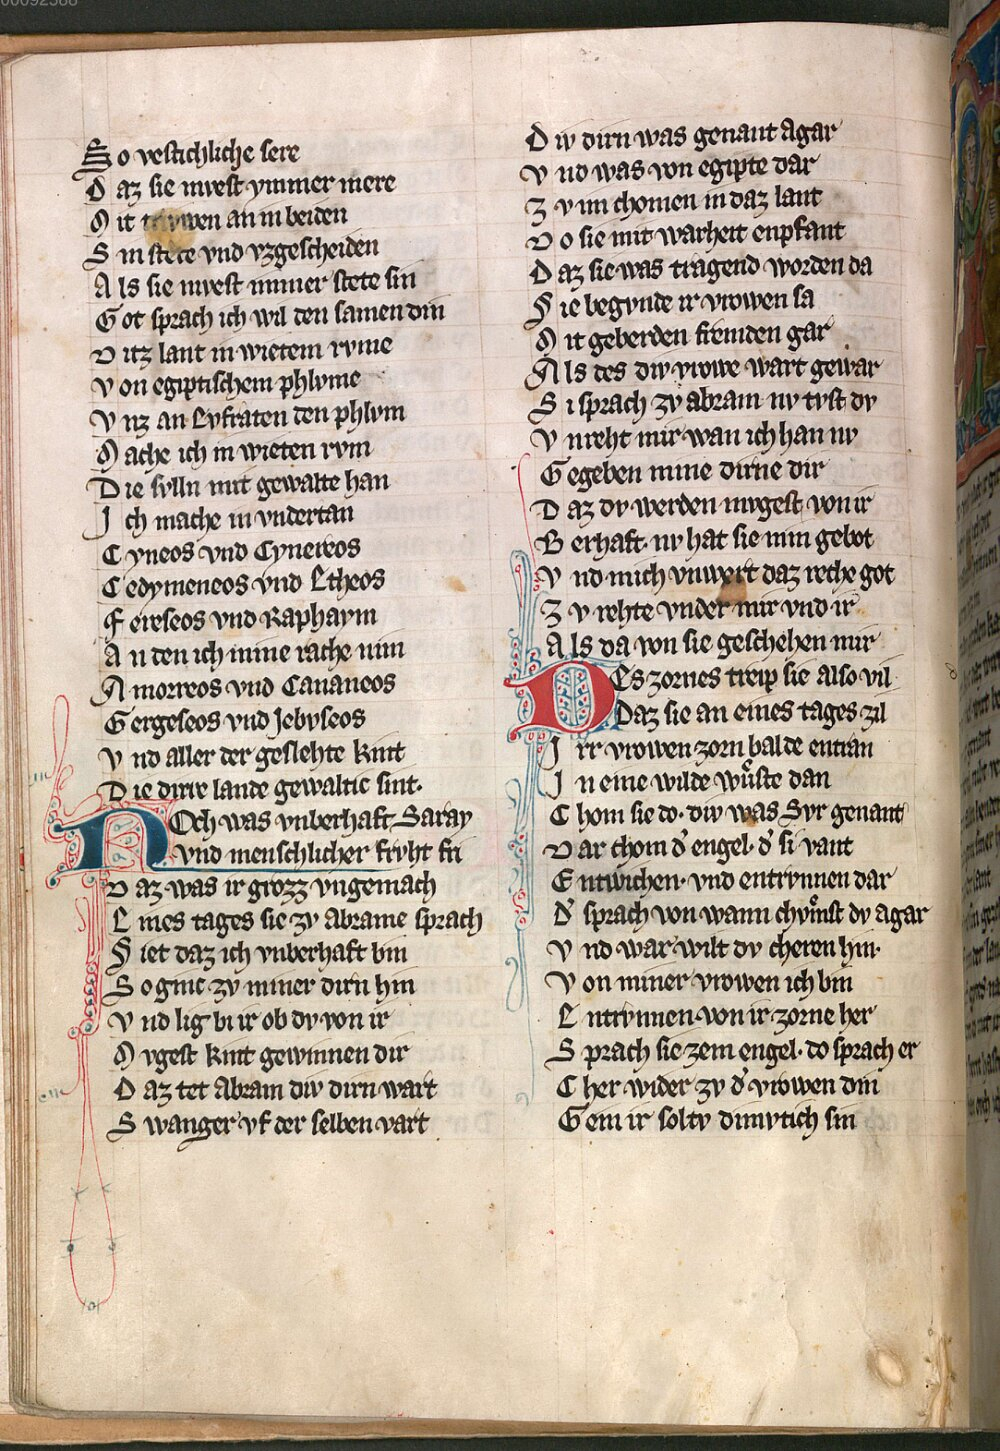 00092388
So vestichliche sere
Daz sie mvest ymmer mere
Mit trywen an in beiden
Sin stete vnd vzgescheiden
Als sie mvest immer stete sin
Got sprach ich wil den samen din
Ditz lant in wietem rvme
Von egiptischem phlvme
Vnz an Evfraten den phlvm
Mache ich in wieten rvm
Die svlln mit gewalte han
Ich mache in vndertan
Cyneos vnd Cynereos
Cedymeneos vnd Etheos
Fereseos vnd Raphaym
An den ich mine rache nim
Amorreos vnd Cananeos
Gergeseos vnd Jebvseos
Vnd aller der geslehte kint
Die dirre lande gewaltic sint.
NOch was vnberhaft Saray
Vnd menschlicher frvht fri
Daz was ir grozz vngemach
Eines tages sie zv Abrame sprach
Siet daz ich vnberhaft bin
So ginc zv miner dirn hin
Vnd lig bi ir ob dv von ir
Mvgest kint gewinnen dir
Daz tet Abram div dirn wart
Swanger vf der selben vart
Div dirn was genant Agar
Vnd was von egipte dar
Zv im chomen in daz lant
Do sie mit warheit enpfant
Daz sie was tragend worden da
Sie begvnde ir vrowen sa
Mit geberden fremden gar
Als des div vrowe wart gewar
Si sprach zv abram nv tvst dv
Vnreht mir wan ich han nv
Gegeben mine dirne dir
Daz dv werden mvgest von ir
Berhaft. nv hat sie min gebot
Vnd mich vnwert daz reche got
Zv rehte vnder mir vnd ir
Als da von sie geschehen mir
DEs zornes treip sie also vil
Daz sie an eines tages zil
Irr vrowen zorn balde entran
In eine wilde wůste dan
Chom sie do. div was Syr genant
Dar chom d' engel. d' si vant
Entwichen. vnd entrvnnen dar
D' sprach von wann chvmst dv agar
Vnd war wilt dv cheren hin.
Von miner vrowen ich bin
Entrvnnen von ir zorne her
Sprach sie zem engel. do sprach er
Cher wider zv d' vrowen din
Gein ir soltv dimvtich sin